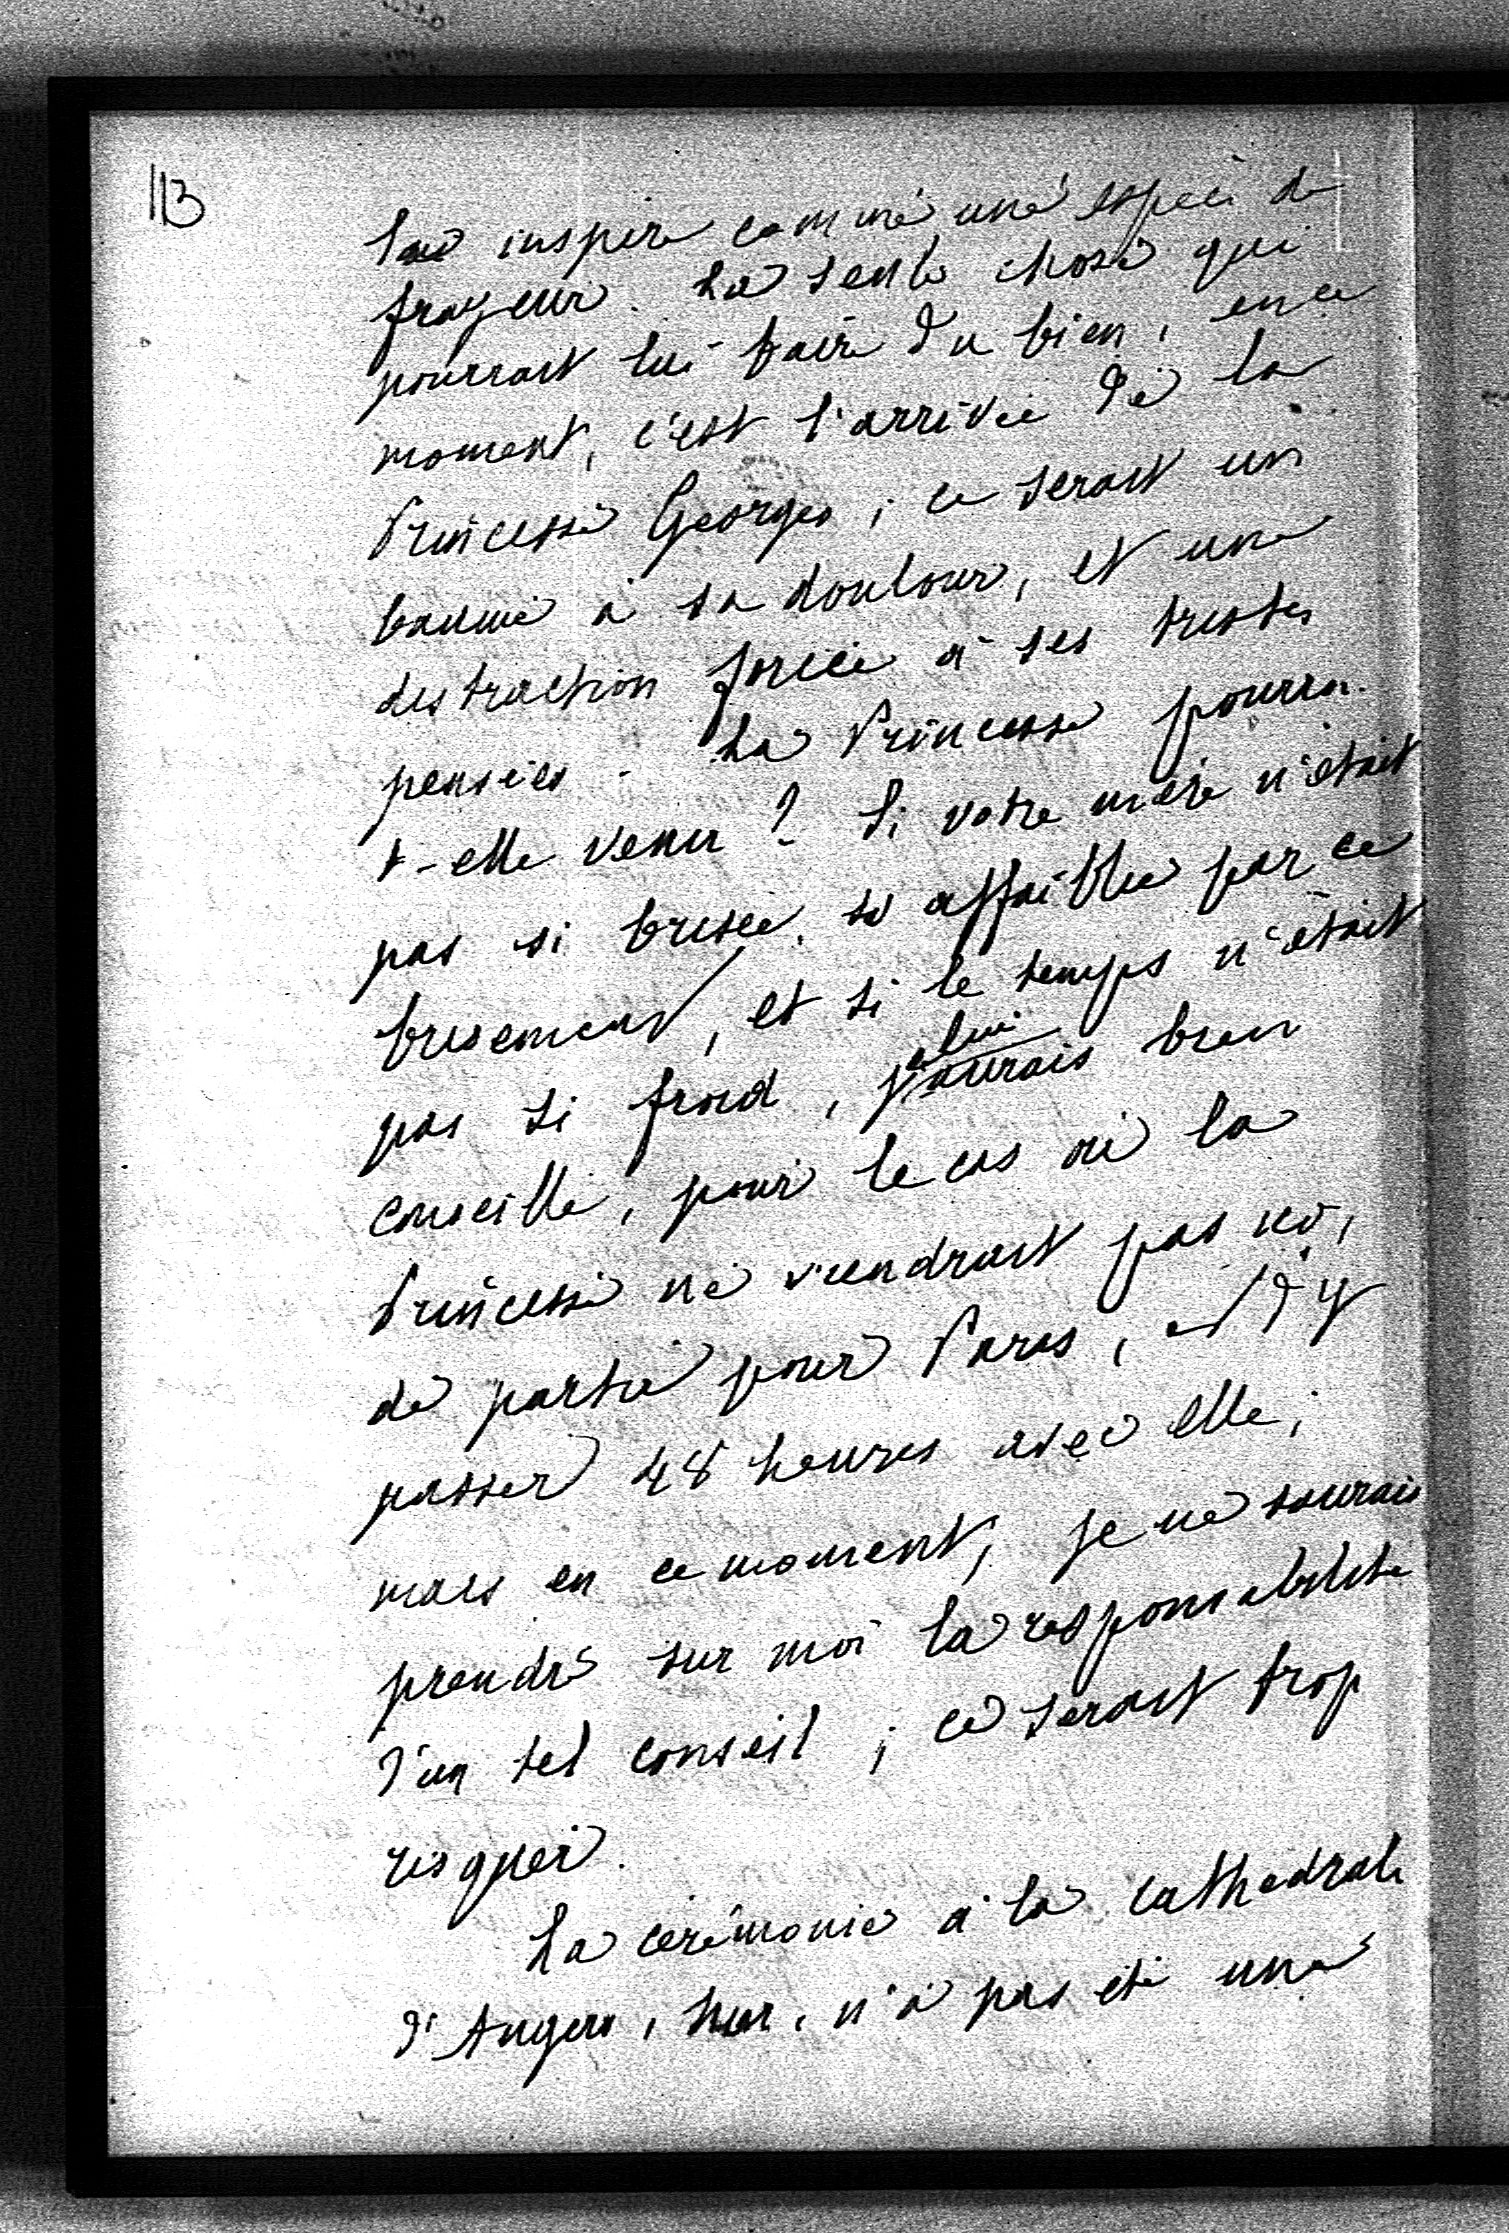 113
lui inspire comme une espèce de
frayeur. La seule chose qui
pourrait lui faire du bien, en ce
moment, c'est l'arrivée de la
Princesse Georges ; ce serait un
baume à sa douleur, et une
distraction forcée à ses tristes
pensées. La Princesse pourra-
t-elle venir ? Si votre mère n'était
pas si brisée, si affaiblie par ce
brisement, et si le temps n'était
pas si froid, je lui aurais bien
conseillé, pour le cas où la
Princesse ne viendrait pas ici,
de partir pour Paris, et d'y
passer 48 heures avec elle ;
mais en ce moment, je ne saurais
prendre sur moi la responsabilité
d'un tel conseil ; ce serait trop
risquer.
La cérémonie à la cathédrale
d'Angers, hier, n'a pas été une